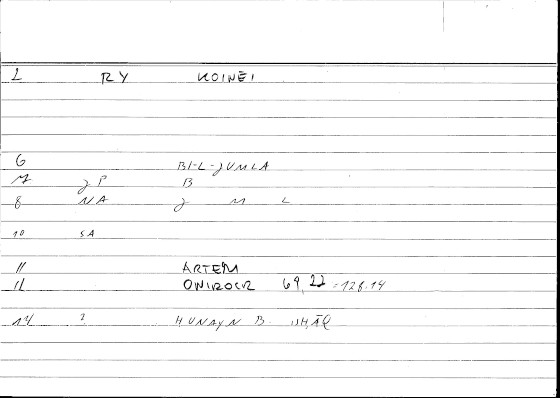 1 RY KOINEI
6 BI-L-JUMLA
7 JP B
8 NA J M L
10 SA
11 ARTEM
12 ONIROCR 69,22 = 128.14
14 ? HUNAYN B. ISHĀQ